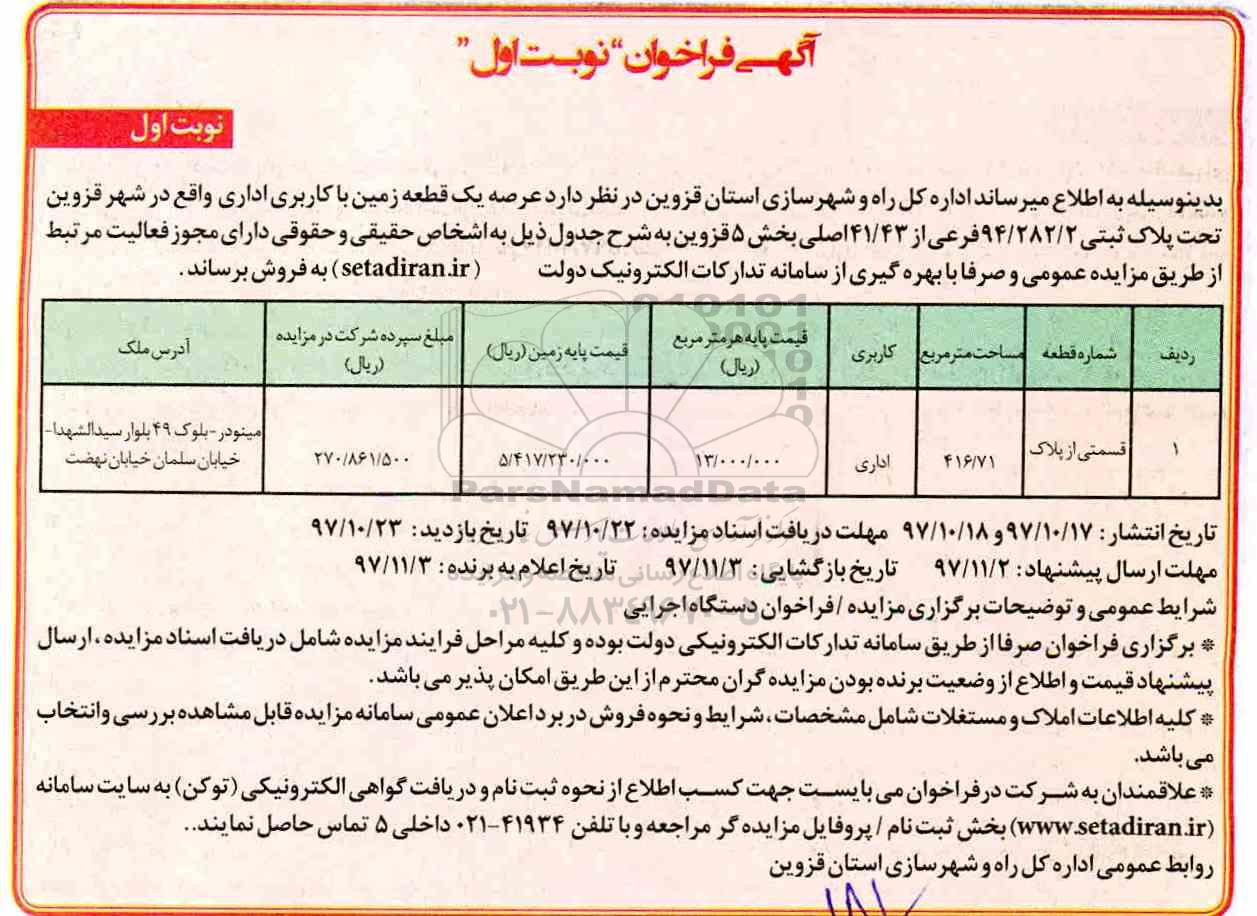 آگهی فراخوان "نوبت اول"
نوبت اول
بدینوسیله به اطلاع میرساند اداره کل راه و شهرسازی استان قزوین در نظر دارد عرصه یک قطعه زمین با کاربری اداری واقع در شهر قزوین
تحت پلاک ثبتی ۹۴/۲۸۲/۲فرعی از ۴۱/۴۳اصلی بخش ۵ قزوین به شرح جدول ذیل به اشخاص حقیقی و حقوقی دارای مجوز فعالیت مرتبط
از طریق مزایده عمومی و صرفا با بهره گیری از سامانه تدارکات الکترونیک دولت (setadiran.ir) به فروش برساند.
ردیف شماره قطعه مساحت مترمربع کاربری قیمت پایه هر متر مربع (ریال) قیمت پایه زمین (ریال) مبلغ سپرده شرکت در مزایده (ریال) آدرس ملک
۱ قسمتی از پلاک ۴۱۶/۷۱ اداری ۱۳/۰۰۰/۰۰۰ ۵/۴۱۷/۲۳۰/۰۰۰ ۲۷۰/۸۶۱/۵۰۰ مینودر-بلوک ۴۹ بلوار سیدالشهدا- خیابان سلمان خیابان نهضت
ParsNamadData
تاریخ انتشار: ۹۷/۱۰/۱۷ و ۹۷/۱۰/۱۸ مهلت دریافت اسناد مزایده: ۹۷/۱۰/۲۲ تاریخ بازدید: ۹۷/۱۰/۲۳
مهلت ارسال پیشنهاد: ۹۷/۱۱/۲ تاریخ بازگشایی: ۹۷/۱۱/۳ تاریخ اعلام به برنده: ۹۷/۱۱/۳
شرایط عمومی و توضیحات برگزاری مزایده /فراخوان دستگاه اجرایی
۰۲۱-۸۸۳۴۹۶۷۰-۵
* برگزاری فراخوان صرفا از طریق سامانه تدارکات الکترونیکی دولت بوده و کلیه مراحل فرایند مزایده شامل دریافت اسناد مزایده ، ارسال
پیشنهاد قیمت و اطلاع از وضعیت برنده بودن مزایده گران محترم از این طریق امکان پذیر می باشد.
* کلیه اطلاعات املاک و مستغلات شامل مشخصات، شرایط و نحوه فروش در برد اعلان عمومی سامانه مزایده قابل مشاهده بررسی وانتخاب
می باشد.
* علاقمندان به شرکت در فراخوان می بایست جهت کسب اطلاع از نحوه ثبت نام و دریافت گواهی الکترونیکی (توکن) به سایت سامانه
(www.setadiran.ir) بخش ثبت نام / پروفایل مزایده گر مراجعه و با تلفن ۴۱۹۳۴-۰۲۱ داخلی ۵ تماس حاصل نمایند..
روابط عمومی اداره کل راه و شهرسازی استان قزوین